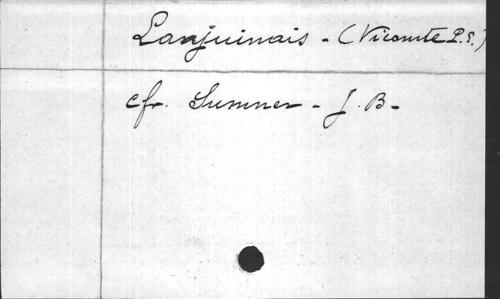 Lanjuinais - (Vicomte P. E.)
cfr. Sumner - J. B -